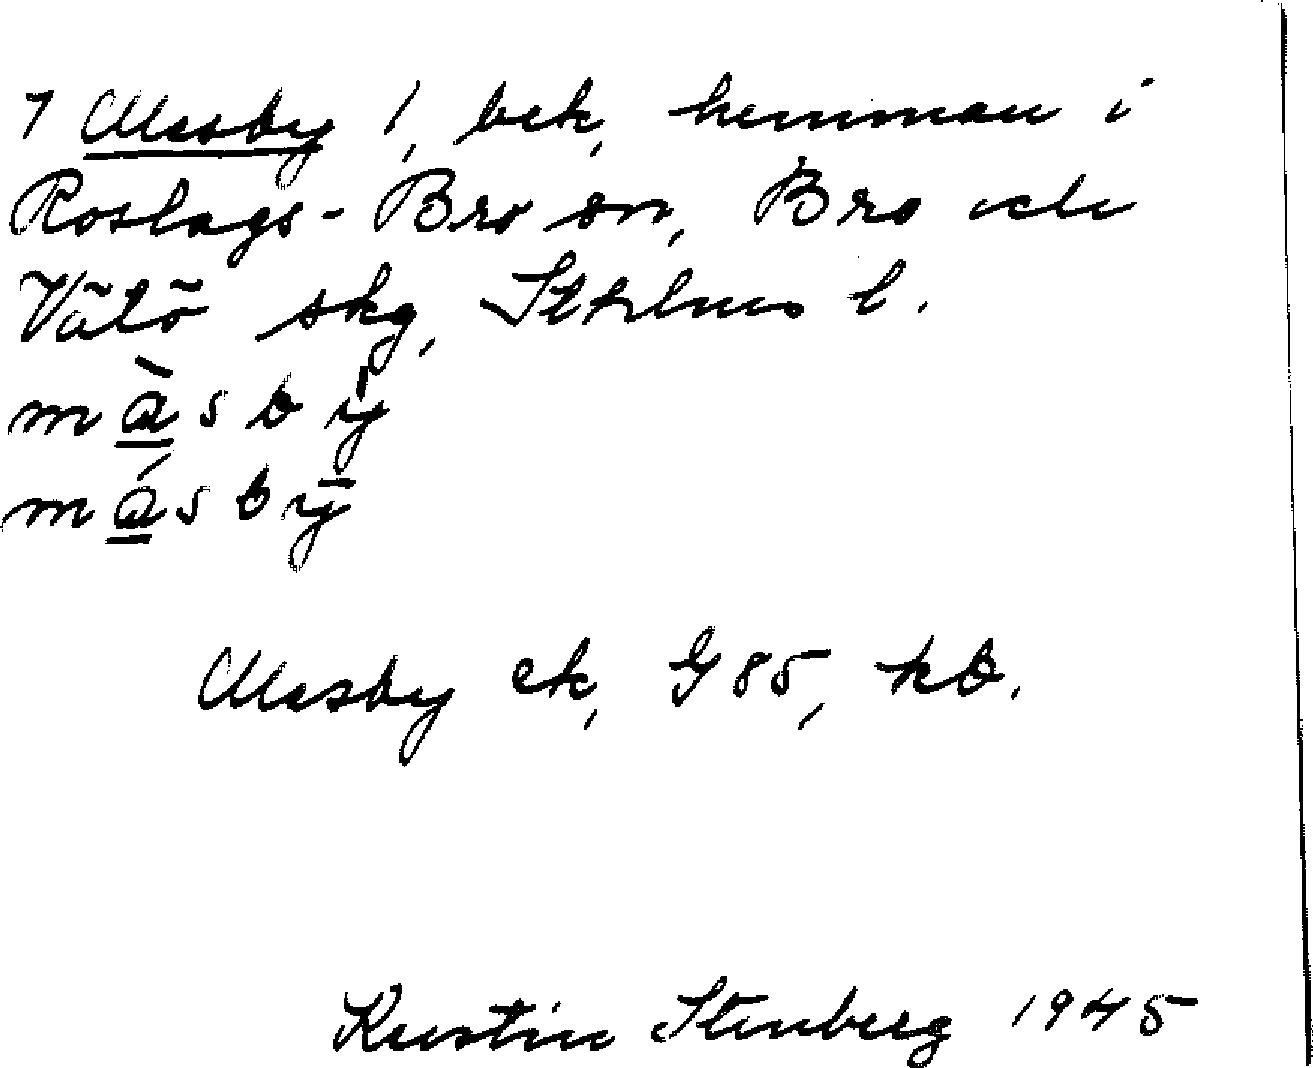 7 Mesby 1, bek, hemman i
Roslags-Bro sn, Bro och
Vätö skg, Sthlms l.
màsby̍
másbȳ
Mesby ek, G 85, kb.
Kerstin Stenberg 1945